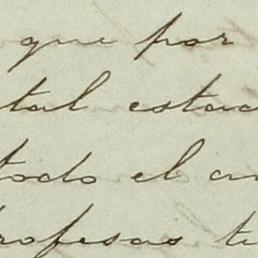 que por
tal estad
todo el am
profesas te